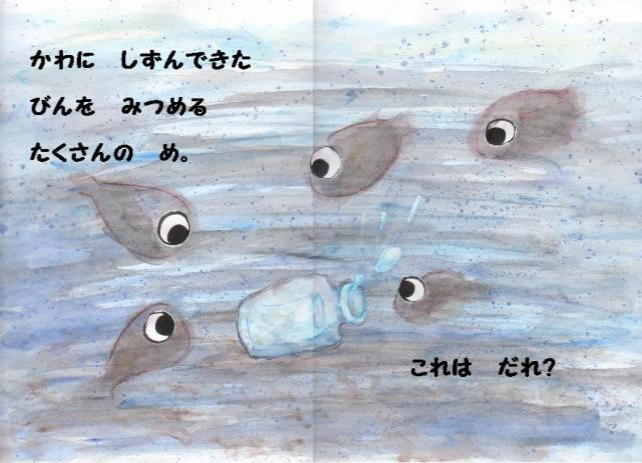 かわに　しずんできた
びんを　みつめる
たくさんの　め。
これは　だれ?